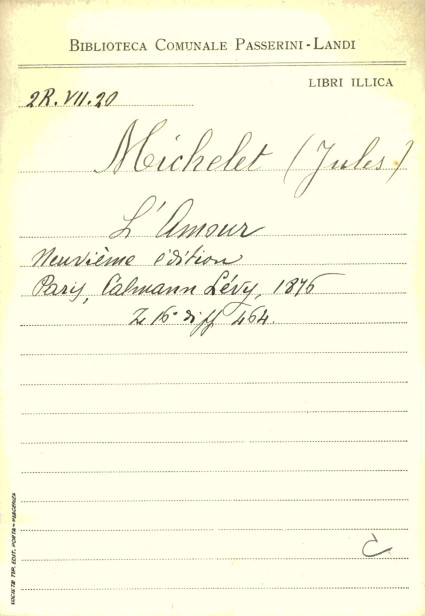 BIBLIOTECA COMUNALE PASSERINI-LANDI
LIBRI ILLICA
2R.VII.20
Michelet (Jules)
L'Amour
Neuvième édition
Paris, Calmann Lévy, 1876
16° 464.
SOCIETÀ TIP. EDIT. PORTA - PIACENZA